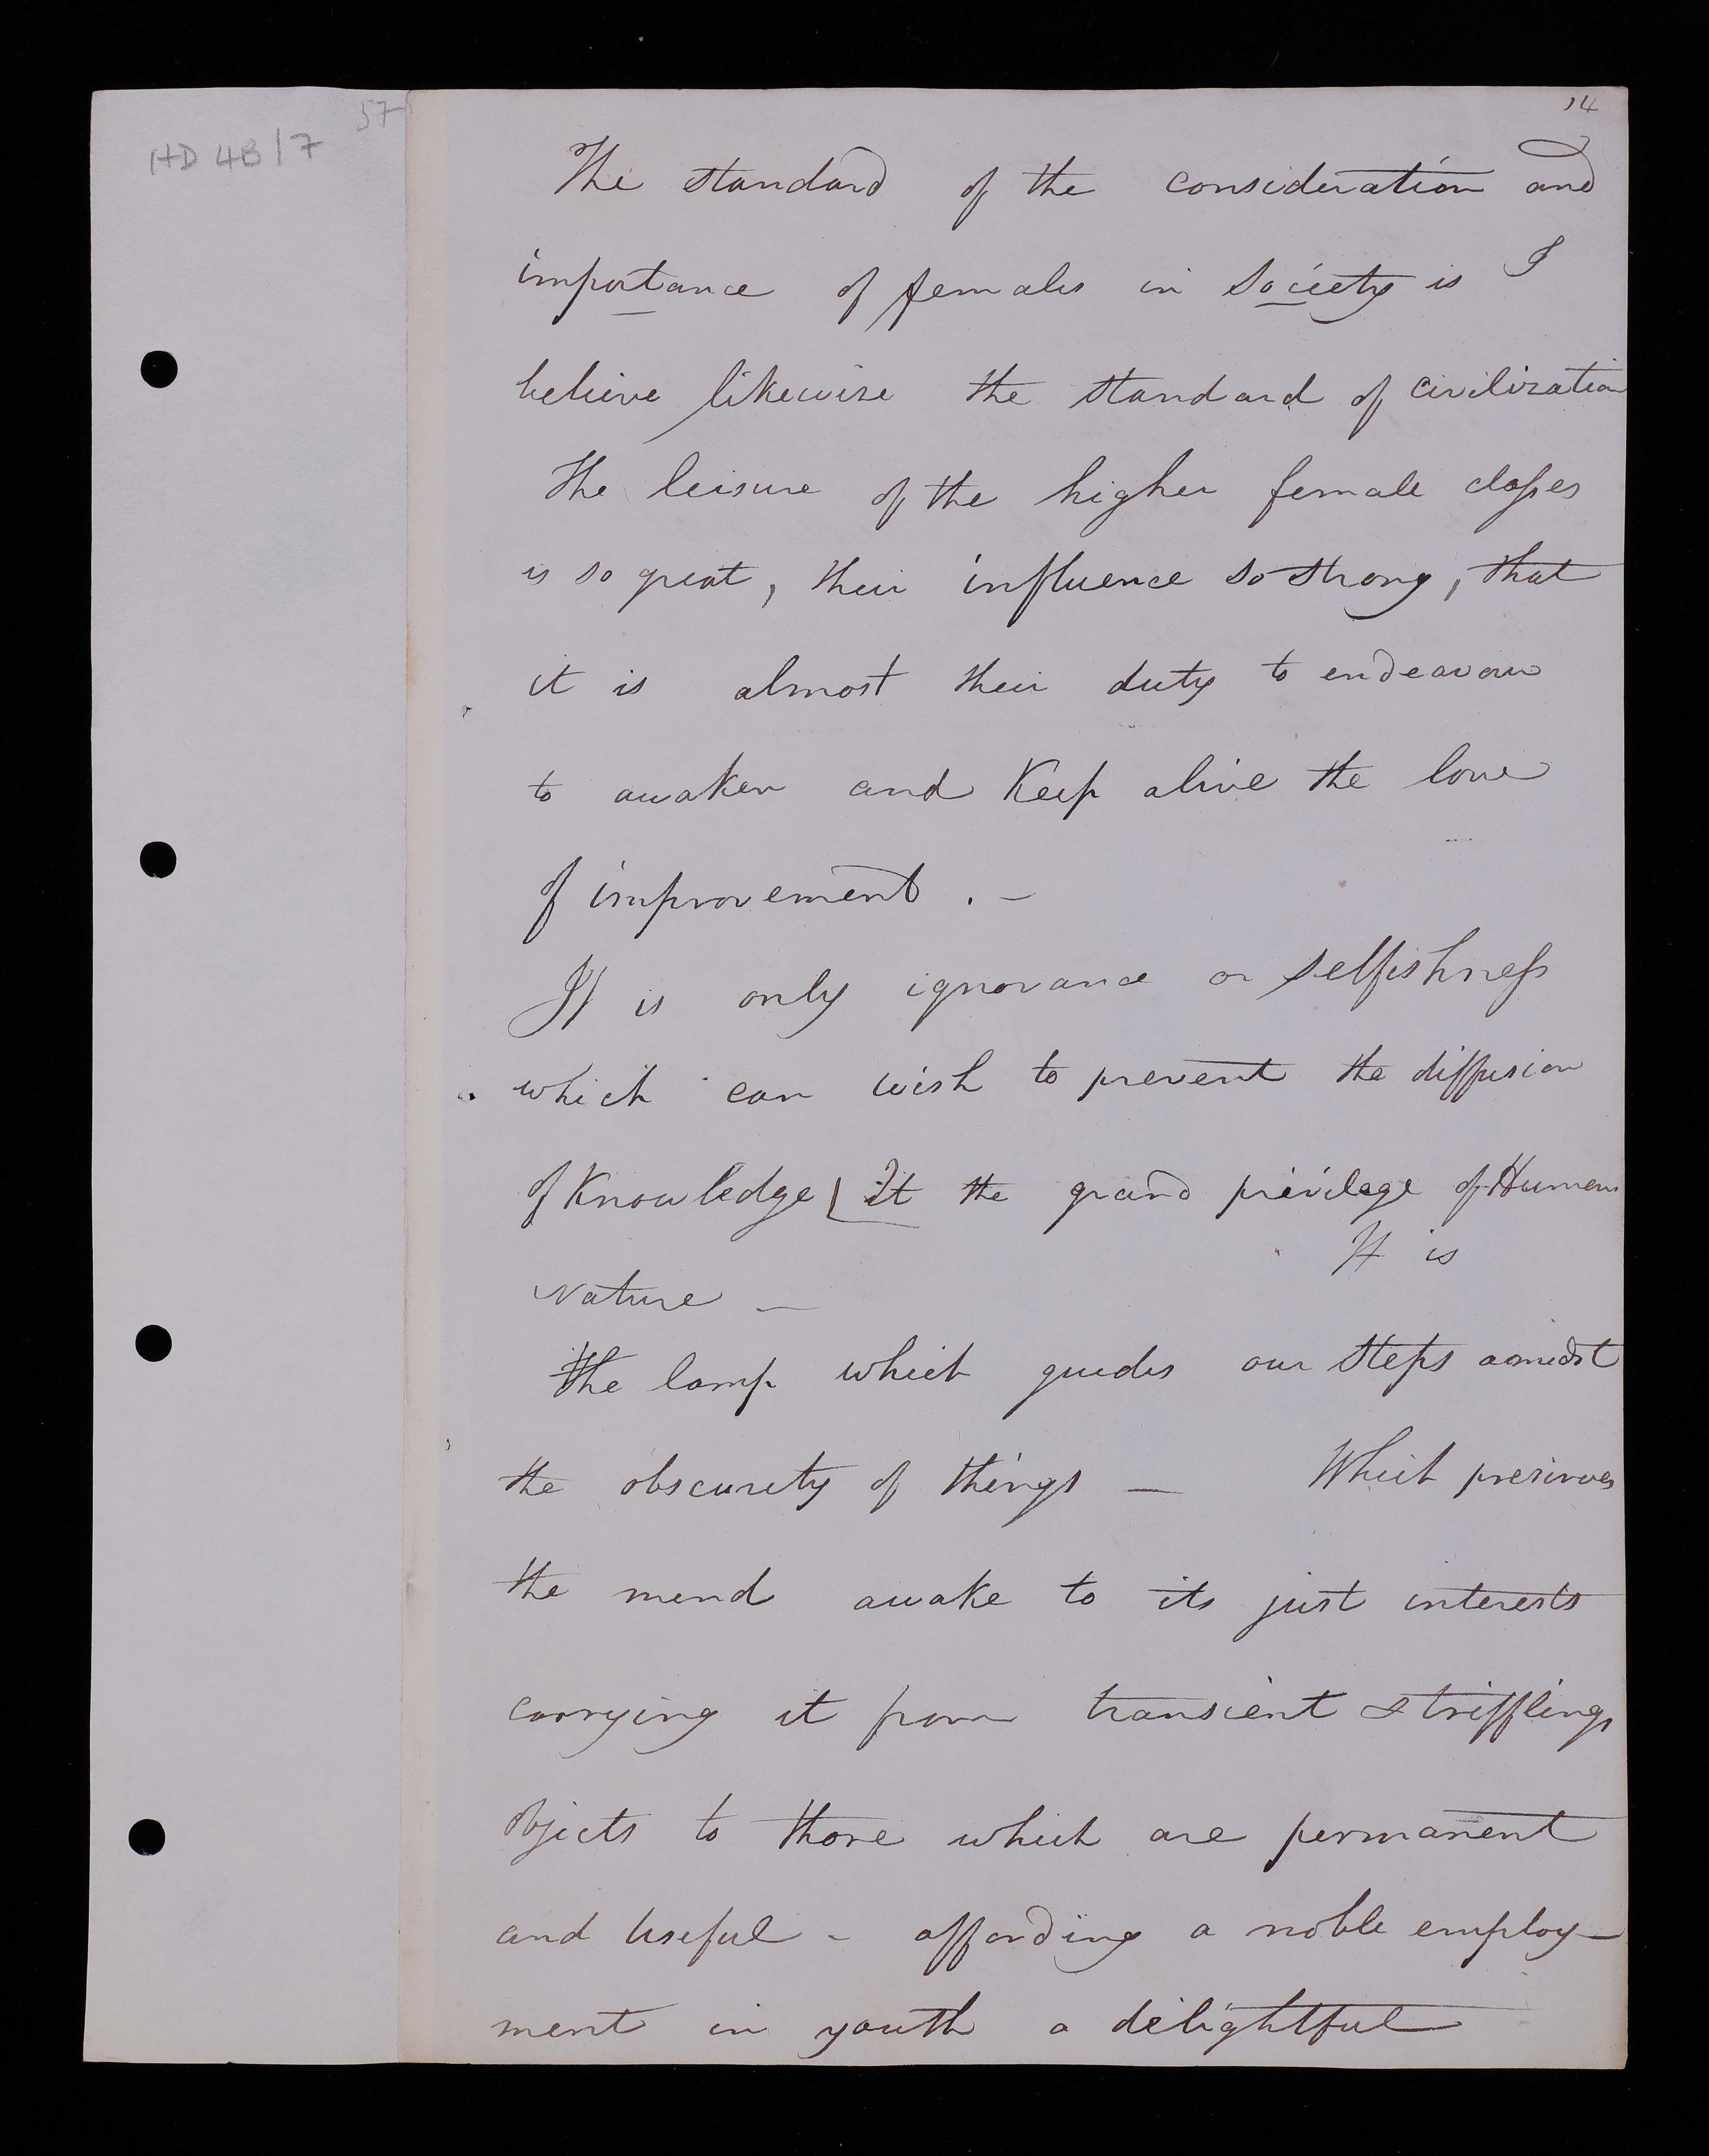 57
HD 4B/7
14
The standard of the consideration and
importance of females in Society is I
believe likewise the standard of civilization
The leisure of the higher female classes
is so great, their influence so strong, that
it is almost their duty to endeavour
to awaken and Keep alive the love
of improvement . –
It is only ignorance or selfishness
which can wish to prevent the diffusion
of Knowledge It the grand privilege of Human
It is
Nature —
the lamp which guides our steps amidst
the obscurity of things — Which preserves
the mind awake to its just interests
carrying it from transient & triffling
objects to those which are permanent
and Useful - affording a noble employ-
ment in youth a delightful